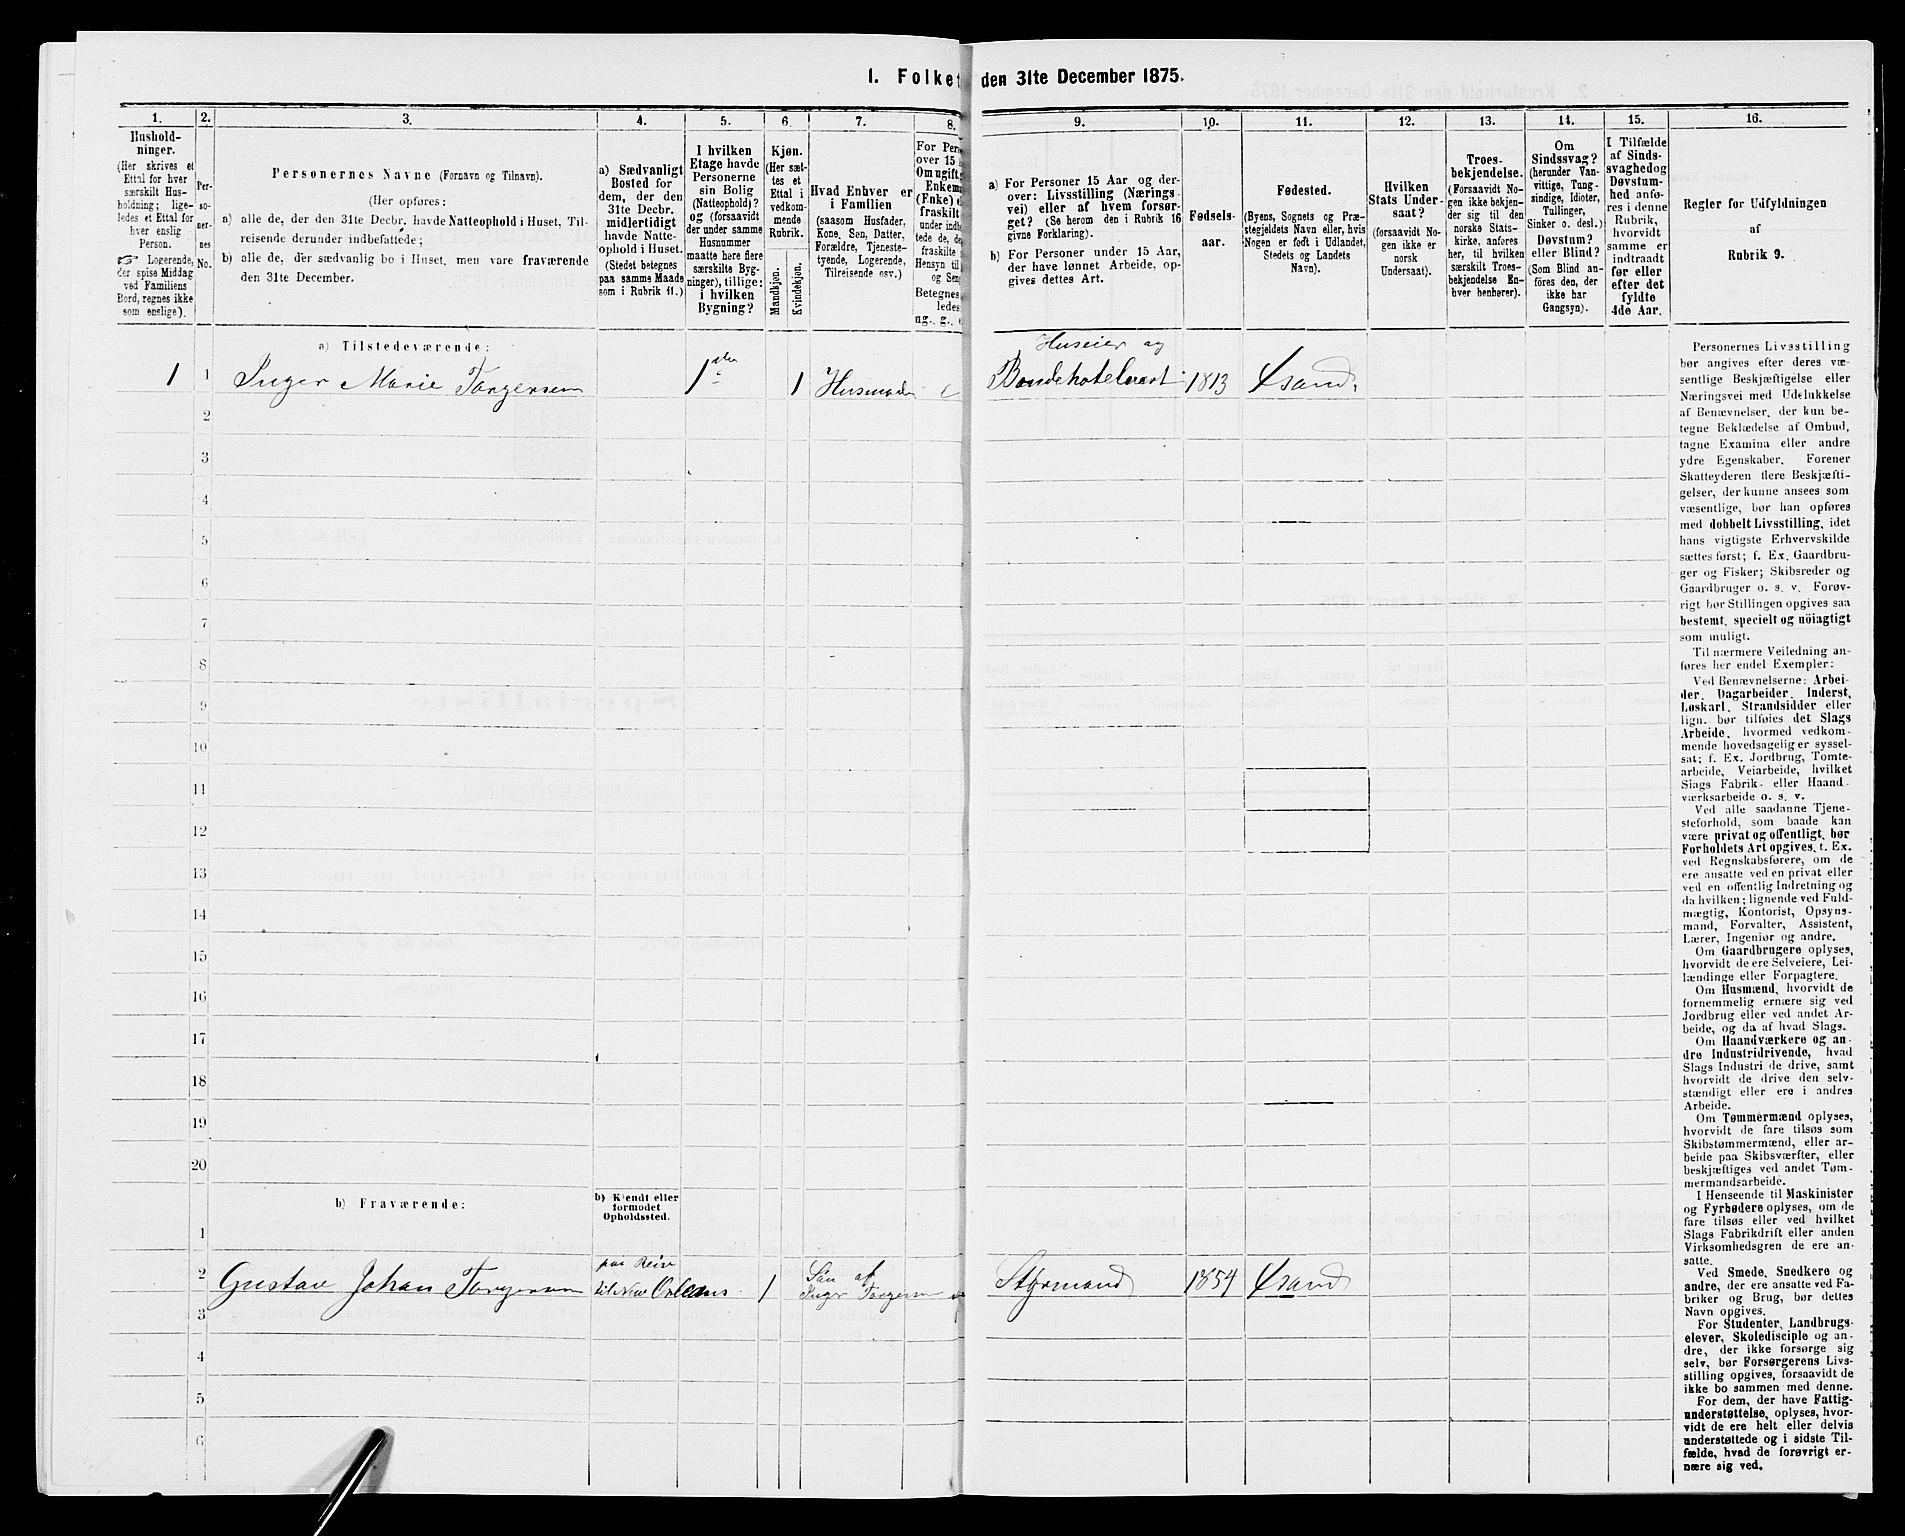 1. Folket
den 31te December 1875.
1.
Hushold-
ninger.
(Her skrives et
Ettal for hver
særskilt Hus-
holdning; lige-
ledes et Ettal for
hver enslig
Person.
Logerende,
der spise Middag
ved Familiens
Bord, regnes ikke
som enslige).
2.
Per-
so-
ner-
nes
No.
3.
Personernes Navne (Fornavn og Tilnavn).
(Her opføres:
a) alle de, der den 31te Decbr. havde Natteophold i Huset, Til-
reisende derunder indbefattede;
b) alle de, der sædvanlig bo i Huset, men vare fraværende
den 31te December.
4.
a) Sædvanligt
Bosted for
dem, der den
31te Decbr.
midlertidigt
havde Natte-
ophold i Huset.
(Stedet betegnes
paa samme Maade
som i Rubrik 11.)
5.
I hvilken
Etage havde
Personerne
sin Bolig
(Natteophold)?
og (forsaavidt
der under samme
Husnummer
maatte høre flere
særskilte Byg-
ninger), tillige:
i hvilken
Bygning?
6.
Kjøn.
(Her sæt-
tes et
Ettal i
vedkom-
mende
Rubrik.
Mandkjøn.
Kvindekjøn.
7.
Hvad Enhver er
i Familien
(saasom Husfader,
Kone, Søn, Datter,
Forældre, Tjeneste-
tyende, Logerende,
Tilreisende osv.)
8.
For Pers
over 15
Om ugift,
Enkem
(Enke) e
fraskilt
under indb
tede de, de
fraskilte
Hensyn til
og Sen
Betegnes
ledes
ug., g., e
9.
a) For Personer 15 Aar og der-
over: Livsstilling (Nærings-
vei) eller af hvem forsør-
get? (Se herom den i Rubrik 16
givne Forklaring).
b) For Personer under 15 Aar,
der have lønnet Arbeide, op-
gives dettes Art.
10.
Fødsels-
aar.
11.
Fødested.
(Byens, Sognets og Præ-
stegjeldets Navn eller, hvis
Nogen er født i Udlandet,
Stedets og Landets
Navn).
12.
Hvilken
Stats Under-
saat?
(forsaavidt No-
gen ikke er
norsk
Undersaat).
13.
Troes-
bekjendelse.
(Forsaavidt No-
gen ikke bekjen-
der sig til den
norske Stats-
kirke, anføres
her, til hvilken
særskilt Troes-
bekjendelse En-
hver henhører).
14.
Om
Sindssvag?
(herunder Van-
vittige, Tung-
sindige, Idioter,
Tullinger,
Sinker o. desl.)
Døvstum?
eller Blind?
(Som Blind an-
føres den, der
ikke har
Gangsyn).
15.
I Tilfælde
af Sinds-
svaghedog
Døvstum-
hed anfø-
res i denne
Rubrik,
hvorvidt
samme er
indtraadt
før eller
efter det
fyldte
4de Aar.
16.
Regler for Udfyldningen
af
Rubrik 9.
a) Tilstedeværende:
1 1 Inger Marie Torgersen 1ste 1 Husmoder e Huseier og
Bondehotelvært 1813 Xsand,
2
3
4
5
6
7
8
9
10
11
12
13
14
15
16
17
18
19
20
b) Fraværende:
b) Kjendt eller
formodet
Opholdssted.
1
2 Gustav Johan Torgersen paa Reise
til New Orleans 1 Sön af
Inger Torgersen Styrmand 1854 Xsand
3
4
5
6
Personernes Livsstilling
bør angives efter deres væ-
sentlige Beskjæftigelse eller
Næringsvei med Udelukkelse
af Benævnelser, der kun be-
tegne Beklædelse af Ombud,
tagne Examina eller andre
ydre Egenskaber. Forener
Skatteyderen flere Beskjæfti-
gelser, der kunne ansees som
væsentlige, bør han opføres
med dobbelt Livsstilling, idet
hans vigtigste Erhvervskilde
sættes først; f. Ex. Gaardbru-
ger og Fisker; Skibsreder og
Gaardbruger o. s. v. Forøv-
rigt bør Stillingen opgives saa
bestemt, specielt og nöiagtigt
som muligt.
Til nærmere Veiledning an-
føres her endel Exempler:
Ved Benævnelserne: Arbei-
der, Dagarbeider, Inderst,
Løskarl, Strandsidder eller
lign. bør tilføies det Slags
Arbeide, hvormed vedkom-
mende hovedsagelig er syssel-
sat; f. Ex. Jordbrug, Tomte-
arbeide, Veiarbeide, hvilket
Slags Fabrik- eller Haand-
værksarbeide o. s. v.
Ved alle saadanne Tjene-
steforhold, som baade kan
være privat og offentligt, bør
Forholdets Art opgives, t. Ex.
ved Regnskabsførere, om de
ere ansatte ved en privat eller
ved en offentlig Indretning og
da hvilken; lignende ved Fuld-
mægtig, Kontorist, Opsyns-
mand, Forvalter, Assistent,
Lærer, Ingeniør og andre.
Om Gaardbrugere oplyses,
hvorvidt de ere Selveiere, Lei-
lændinge eller Forpagtere.
Om Husmænd, hvorvidt de
fornemmelig ernære sig ved
Jordbrug eller ved andet Ar-
beide, og da af hvad Slags.
Om Haandværkere og an-
dre Industridrivende, hvad
Slags Industri de drive, samt
hvorvidt de drive den selv-
stændigt eller ere i andres
Arbeide.
Om Tømmermænd oplyses,
hvorvidt de fare tilsøs som
Skibstømmermænd, eller ar-
beide paa Skibsværfter, eller
beskjæftiges ved andet Tøm-
mermandsarbeide.
I Henseende til Maskinister
og Fyrbødere oplyses, om de
fare tilsøs eller ved hvilket
Slags Fabrikdrift eller anden
Virksomhedsgren de ere an-
satte.
Ved Smede, Snedkere og
andre, der ere ansatte ved Fa-
briker og Brug, bør dettes
Navn opgives.
For Studenter, Landbrugs-
elever, Skoledisciple og an-
dre, der ikke forsørge sig
selv, bør Forsørgerens Livs-
stilling opgives, forsaavidt de
ikke bo sammen med denne.
For dem, der have Fattig-
understøttelse, oplyses, hvor-
vidt de ere helt eller delvis
understøttede og i sidste Til-
fælde, hvad de forøvrigt er-
nære sig ved.